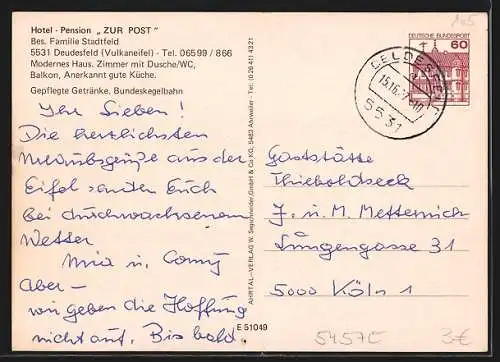 Hotel - Pension „ZUR POST"
Bes. Familie Stadtfeld
5531 Deudesfeld (Vulkaneifel) - Tel. 06599 / 866
Modernes Haus. Zimmer mit Dusche/WC,
Balkon, Anerkannt gute Küche.
Gepflegte Getränke. Bundeskegelbahn
Ihr Lieben!
Die herzlichsten
Urlaubsgrüße aus der
Eifel senden Euch
bei durchwachsenem
Wetter
u. Conny
Aber -
wir geben die Hoffnung
nicht auf. Bis bald.
AHRTAL-VERLAG W. GmbH & Co KG, 5483 Ahrweiler - Tel. (0 26 41) 43 21
E 51049
DEUTSCHE BUNDESPOST
60
5531
Gaststätte
Thieboldseck
J. u. M. Metternich
Lungengasse 31
5000 Köln 1
145
5457E
3€